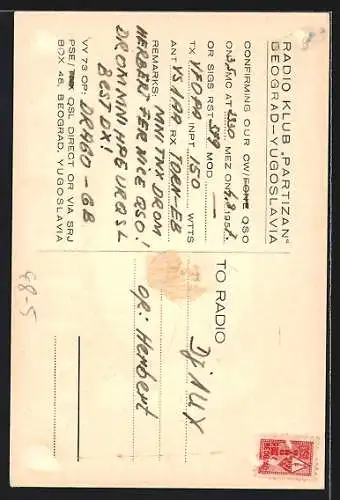 RADIO KLUB „PARTIZAN“
BEOGRAD—YUGOSLAVIA
CONFIRMING OUR CW/FONE QSO
ON 3,5 MC AT 2330 MEZ ON 195
OR SIGS RST 599 MOD —
TX VFO PA INPT 150 WTTS
ANT VS1AA RX TORN-EB
REMARKS: MNI TNX DROM
HERBERT FER NICE QSO!
DR OM MNI HPE UR QSL
BEST DX!
VV 73 OP:
PSE/TNX QSL DIRECT OR VIA SRJ
BOX 48, BEOGRAD, YUGOSLAVIA
TO RADIO
DJ1UX
op: Herbert
48-5